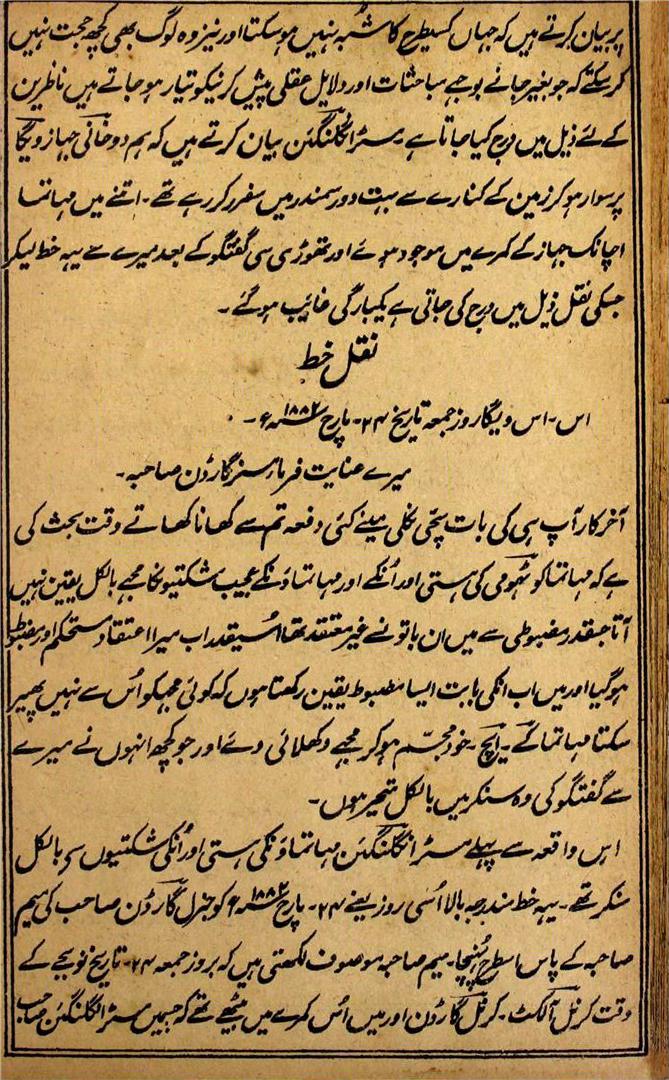 پر بیان کرتے ہیں کہ جہاں کسیطرح کا شُبہ نہیں ہوسکتا اور نیز وہ لوگ بھی کچھ حجت نہیں
کرسکتے کہ جو بغیر جانے بوجھے مباحثات اور دلایل عقلی پیش کرنیکو تیار ہوجاتے ہیں ناظرین
کے لئے ذیل میں درج کیا جاتا ہے ۔ مسٹر انگلنگٹن بیان کرتے ہیں کہ ہم دوخانی جہاز ویگا
پر سوار ہوکر زمین کے کنارے سے بہت دور سمندر میں سفر کر رہے تھے ۔ اتنے میں مہاتما
اچانک جہاز کے کمرے میں موجود ہوئے اور تھوڑی سی گفتگو کے بعد میرے سے یہہ خط لیکر
جسکی نقل ذیل میں درج کی جاتی ہے یکبارگی غایب ہوگئے ۔
نقل خط
اس ۔ اس ویگا روز جمعہ تاریخ ۲۴ ۔ مارچ ۱۸۸۲ ؁ ء ۔
میرے عنایت فرما مسز گارڈن صاحبہ ۔
آخرکار آپ ہی کی بات سچّی نکلی مینے کئی دفعہ تم سے کھانا کھاتے وقت بحث کی
ہے کہ مہاتما کوٹہومی کی ہستی اور اُنکے اور مہاتماؤنکے عجیب شکتیونکا مجہے بالکل یقین نہیں
آتا جسقدر مضبوطی سے میں ان باتونسے غیر معتقد تھا اُسیقدر اب میرا اعتقاد مستحکم اور مضبوط
ہوگیا اور میں اب انکی بابت ایسا مضبوط یقین رکھتا ہوں کہ کوئی مجہکو اُس سے نہیں پھیر
سکتا مہاتما کے ۔ ایچ ۔ خود مجسّم ہوکر مجہے دکھلائی دئے اور جو کچھ انہوں نے میرے
سے گفتگو کی وہ سنکر میں بالکل متحیر ہوں ۔
اس واقعہ سے پہلے مسٹر انگلنگٹن مہاتماؤنکی ہستی اور اُنکی شکتیوں سے بالکل
منکر تھے ۔ یہہ خط مندرجہ بالا اُسی روز یعنے ۲۴ ۔ مارچ ۱۸۸۲ ؁ ء کو جنرل گارڈن صاحب کی میم
صاحبہ کے پاس اسطرح پہنچا ۔ میم صاحبہ موصوف لکھتی ہیں کہ بروز جمعہ ۲۴ ۔ تاریخ نو بجے کے
وقت کرنل آلکٹ ۔ کرنل گارڈن اور میں اُس کمرے میں بیٹھے تھے کہ جسمیں مسٹر انگلنگٹن صاحب